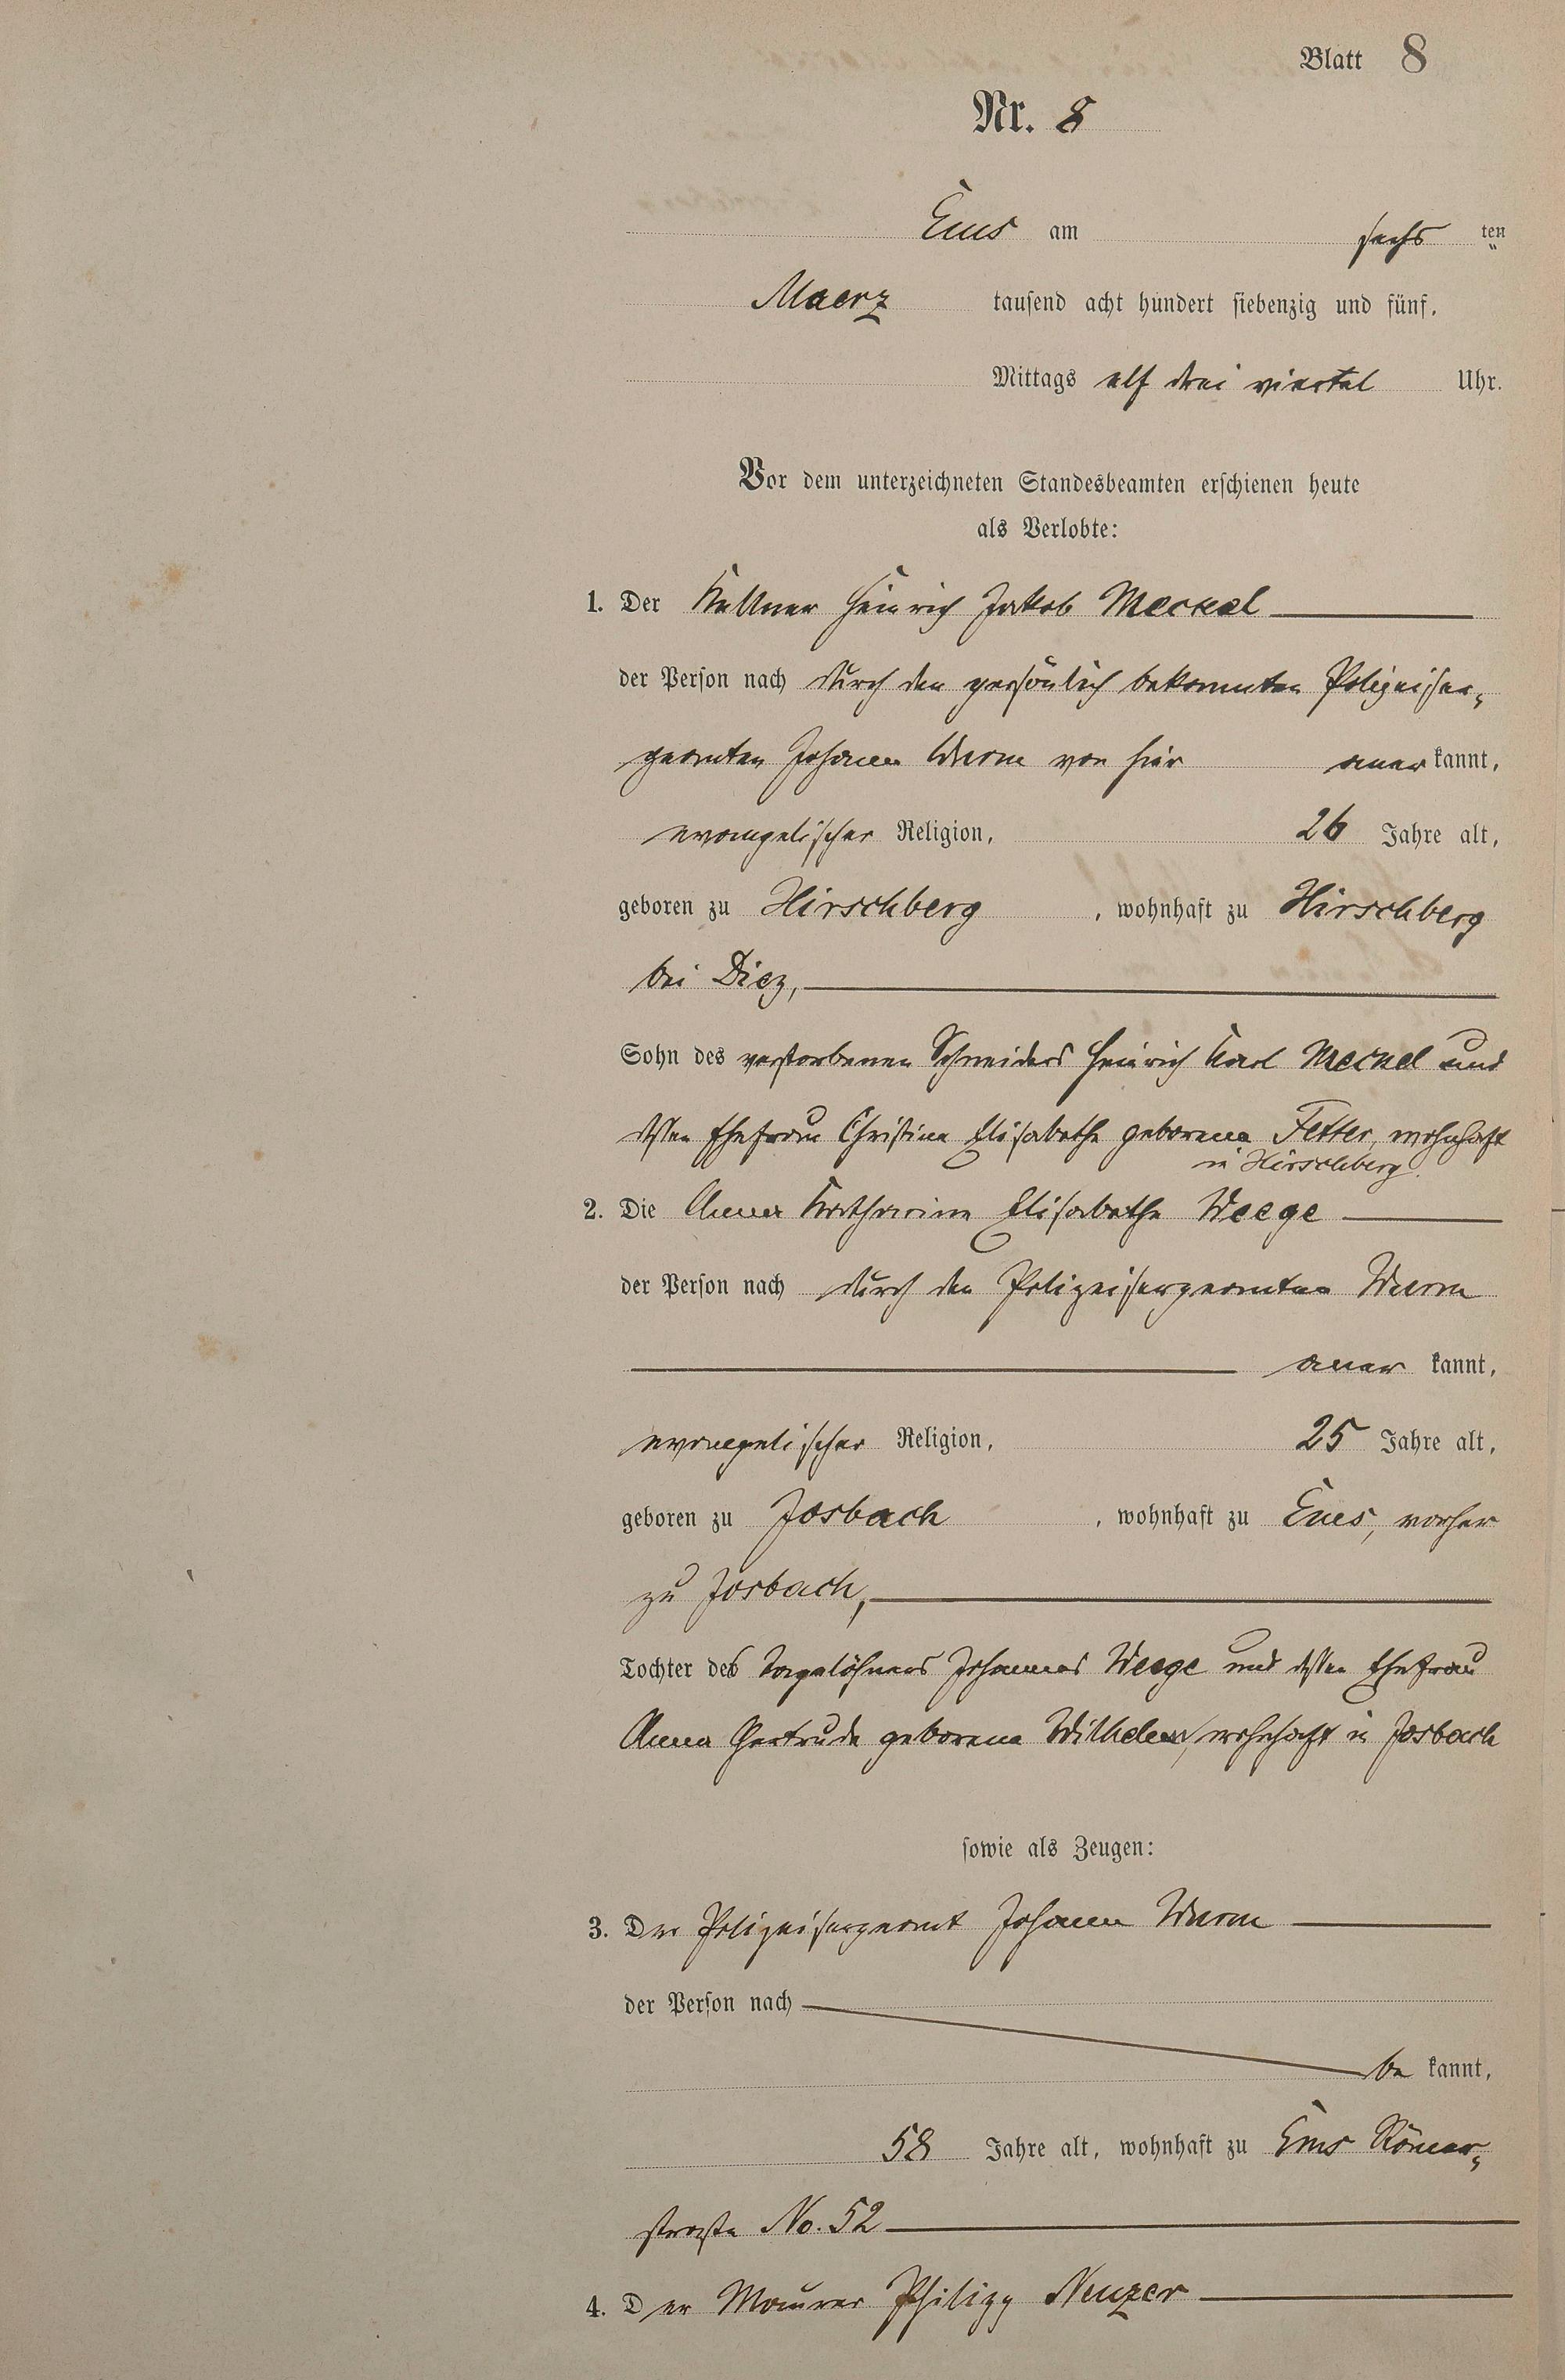 Blatt 8
Nr. 8
Ems am sechs ten
Maerz tausend acht hundert siebenzig und fünf.
Mittags elf drei viertel Uhr.
Vor dem unterzeichneten Standesbeamten erschienen heute
als Verlobte:
1. Der Kellner Heinrich Jakob Meckel
der Person nach durch den persönlich bekannten Polizeiser-
geanten Johann Wurm von hier aner kannt,
evangelischer Religion, 26 Jahre alt,
geboren zu Hirschberg, wohnhaft zu Hirschberg
bei Diez,
Sohn des verstorbenen Schneiders Heinrich Karl Meckel und
dessen Ehefrau Christine Elisabethe geborene Fetter, wohnhaft
in Hirschberg.
2. Die Anna Katharine Elisabethe Weege
der Person nach durch den Polizeisergeanten Wurm
aner kannt,
evangelischer Religion, 25 Jahre alt,
geboren zu Josbach, wohnhaft zu Ems, vorher
zu Josbach,
Tochter des Tagelöhners Johannes Weege und dessen Ehefrau
Anna Gertrude geborene Wilhelm, wohnhaft in Josbach
sowie als Zeugen:
3. Der Polizeisergeant Johann Wurm
der Person nach
be kannt,
58 Jahre alt, wohnhaft zu Ems Römer-
straße No. 52
4. Der Maurer Philipp Neuzer